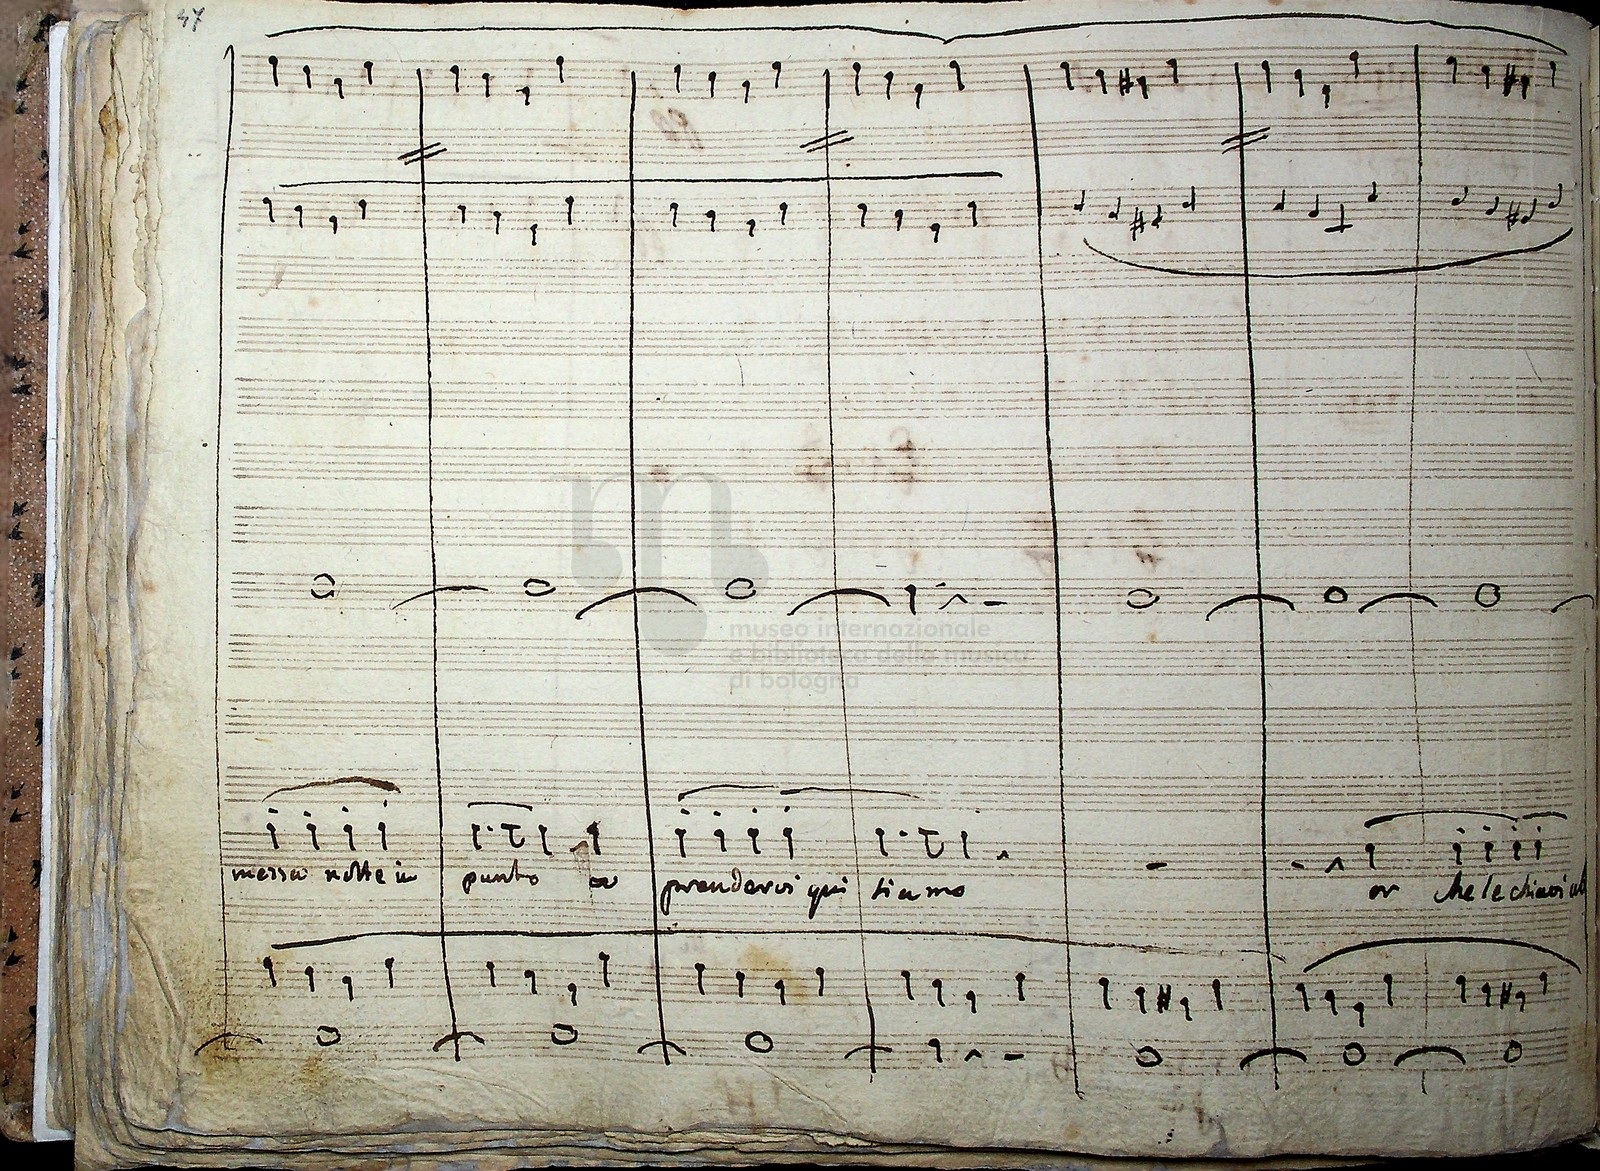 47
museo internazionale
e biblioteca della musica
di bologna
mezza notte in punto a prendervi qui siamo or che le chiavi